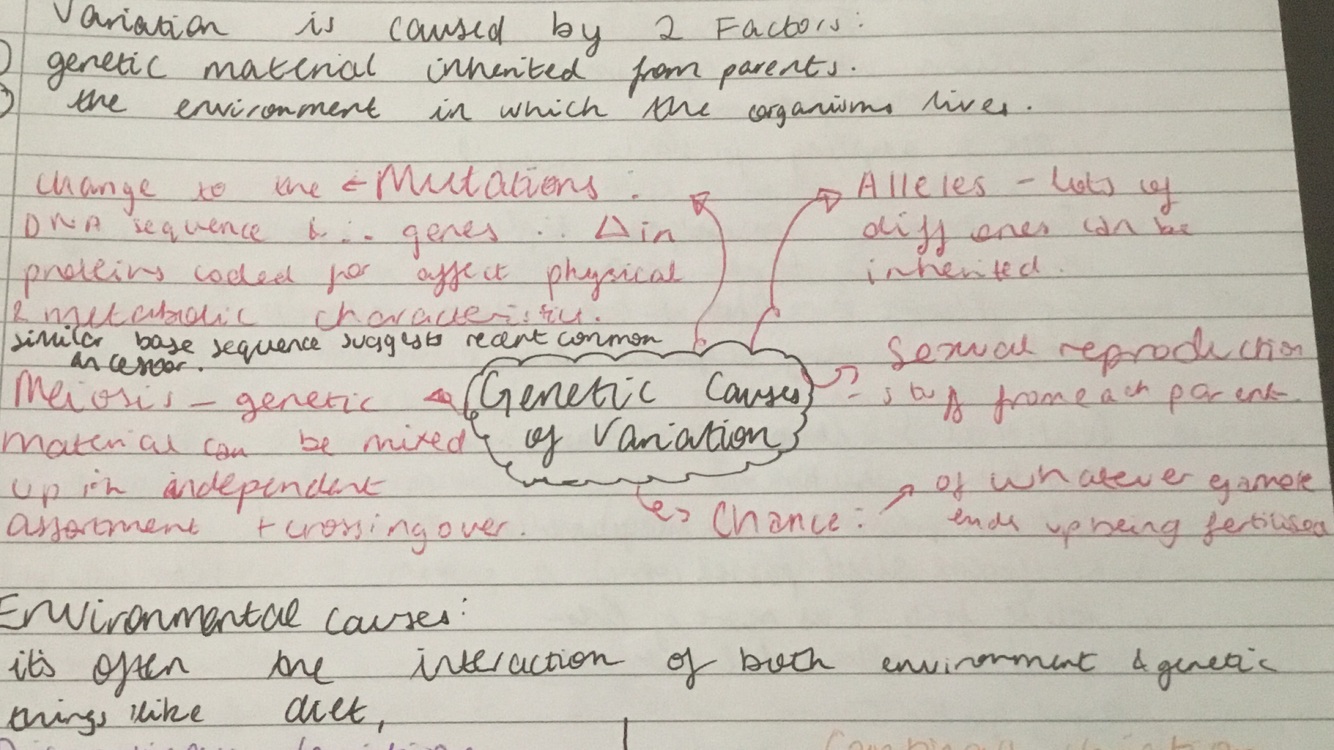 Variation is caused by 2 Factors:
genetic material inherited from parents.
the environment in which the organisms lives.
change to the ← Mutations:
DNA sequence & .. genes ∴ Δ in
proteins coded for affect physical
& metabolic characteristic.
similar base sequence suggests recent common
ancesor.
Alleles - lots of
diff ones can be
inherited.
Genetic Causes
of Variation
Sexual reproduction
- from each parent
Meiosis - genetic
material can be mixed
up in independent
assortment + crossing over.
Chance:
of whatever gamete
ends up being fertilised
Environmental causes:
it's often the interaction of both environment & genetic
things like diet,